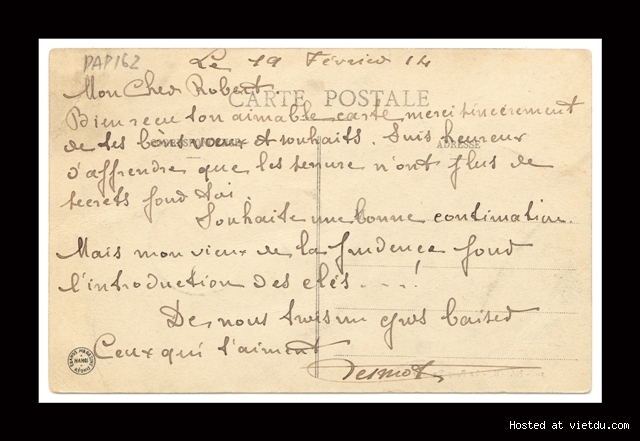 PAP162
Le 19 Février 14
Mon Cher Robert.
CARTE POSTALE
Bien recu ton aimable carte merci sincèrement
de tes bons voeux et souhaits. Suis heureux
CORRESPONDANCE
ADRESSE
d'apprendre que les serrure n'ont plus de
secrets pour toi
Souhaite une bonne continuation.
Mais mon vieux de la prudence pour
l'introduction des clés ....!
De nous tous un gros baiser
Ceux qui t'aiment
Hosted at vietdu.com